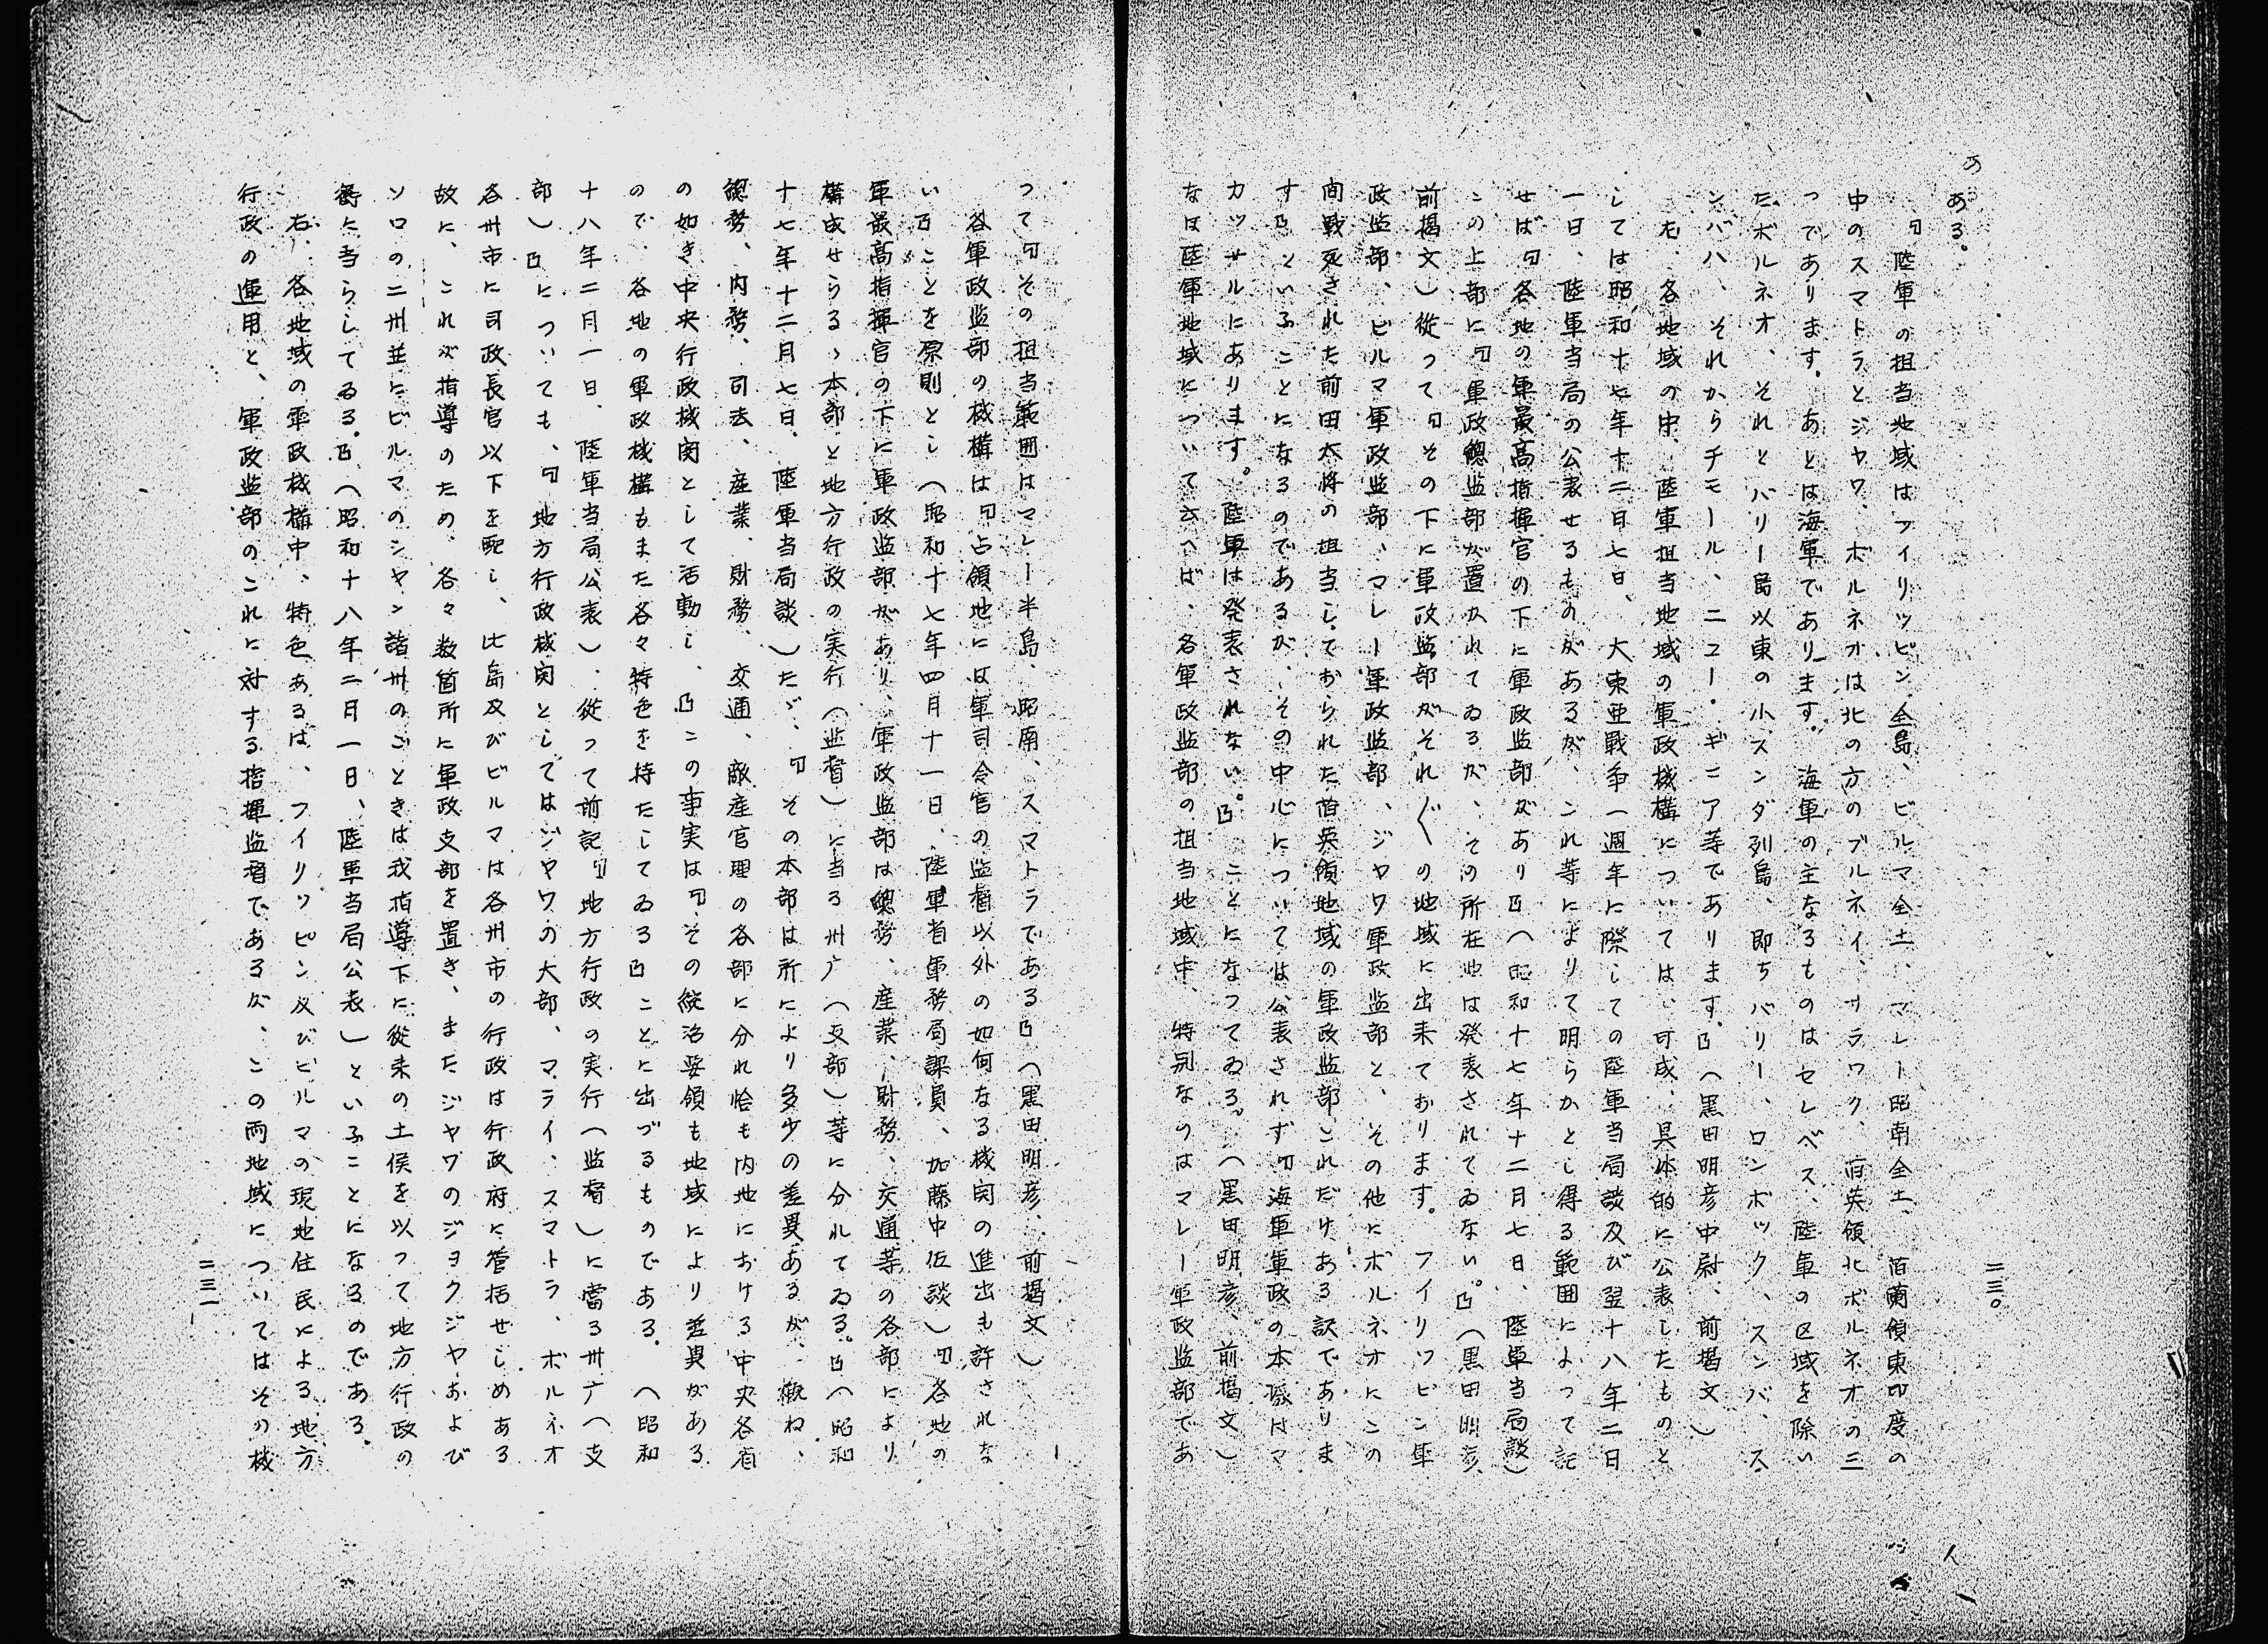 二三〇
のある。
『陸軍の担当地域はフイリッピン全島、ビルマ全土、マレー昭南全土、旧蘭領東印度の
中のスマトラとジヤワ、ボルネオは北の方のブルネイ、サラワク、旧英領北ボルネオの三
つであります。あとは海軍であります。海軍の主なるものはセレベス、陸軍の区域を除い
たボルネオ、それとバリー島以東の小スンダ列島、即ちバリー、ロンボック、スンバ、ス
ンババ、それからチモール、ニユー・ギニア等であります。』(黒田明彦中尉、前掲文)
右、各地域の中、陸軍担当地域の軍政機構については、可成、具体的に公表したものと
しては昭和十七年十二日七日、大東亜戦争一週年に際しての陸軍当局談及び翌十八年二日
一日、陸軍当局の公表せるものがあるが、これ等によりて明らかとし得る範囲によつて記
せば『各地の軍最高指揮官の下に軍政監部があり』(昭和十七年十二月七日、陸軍当局談)
この上部に『軍政總監部が置かれてゐるが、その所在地は発表されてゐない。』(黒田明彦、
前掲文)従つて『その下に軍政監部がそれ〴〵の地域に出来ております。フイリツピン軍
政監部、ビルマ軍政監部、マレー軍政監部、ジヤワ軍政監部と、その他にボルネオにこの
間戦死された前田大将の担当しておられた旧英領地域の軍政監部、これだけある訳でありま
す』といふことになるのであるが、その中心については公表されず『海軍軍政の本據はマ
カツサルにあります。陸軍は発表されない。』ことになつてゐる。(黒田明彦、前掲文)
なほ陸軍地域について云へば、各軍政監部の担当地域中、特別なのはマレー軍政監部であ
つて『その担当範囲はマレー半島、昭南、スマトラである』(黒田明彦、前掲文)
各軍政監部の機構は『占領地には軍司令官の監督以外の如何なる機関の進出も許されな
い』ことを原則とし(昭和十七年四月十一日、陸軍省軍務局課員、加藤中佐談)『各地の
軍最高指揮官の下に軍政監部があり、軍政監部は總務、産業、財務、交通等の各部により
構成せらるゝ本部と地方行政の実行(監督)に当る州庁(支部)等に分れてゐる。』(昭和
十七年十二月七日、陸軍当局談)たゞ、『その本部は所により多少の差異あるが、概ね、
總務、内務、司法、産業、財務、交通、敵産官理の各部に分れ恰も内地における中央各省
の如き中央行政機関として活動し、』この事実は『その統治要領も地域により差異がある
ので、各地の軍政機構もまた各々特色を持たしてゐる』ことに出づるものである。(昭和
十八年二月一日、陸軍当局公表)、従つて前記『地方行政の実行(監督)に當る州庁(支
部)』についても、『地方行政機関としてはジヤワの大部、マライ、スマトラ、ボルネオ
各州市に司政長官以下を配し、比島及びビルマは各州市の行政は行政府に管括せしめある
故に、これが指導のため、各々数箇所に軍政支部を置き、またジヤワのジヨクジヤおよび
ソロの二州並にビルマのシヤン諸州のごときは我指導下に従来の土侯を以つて地方行政の
衝に当らしてゐる。』(昭和十八年二月一日、陸軍当局公表)といふことになるのである。
右、各地域の軍政機構中、特色あるは、フイリツピン及びビルマの現地住民による地方
行政の運用と、軍政監部のこれに対する指揮監督であるが、この両地域についてはその機
二三一